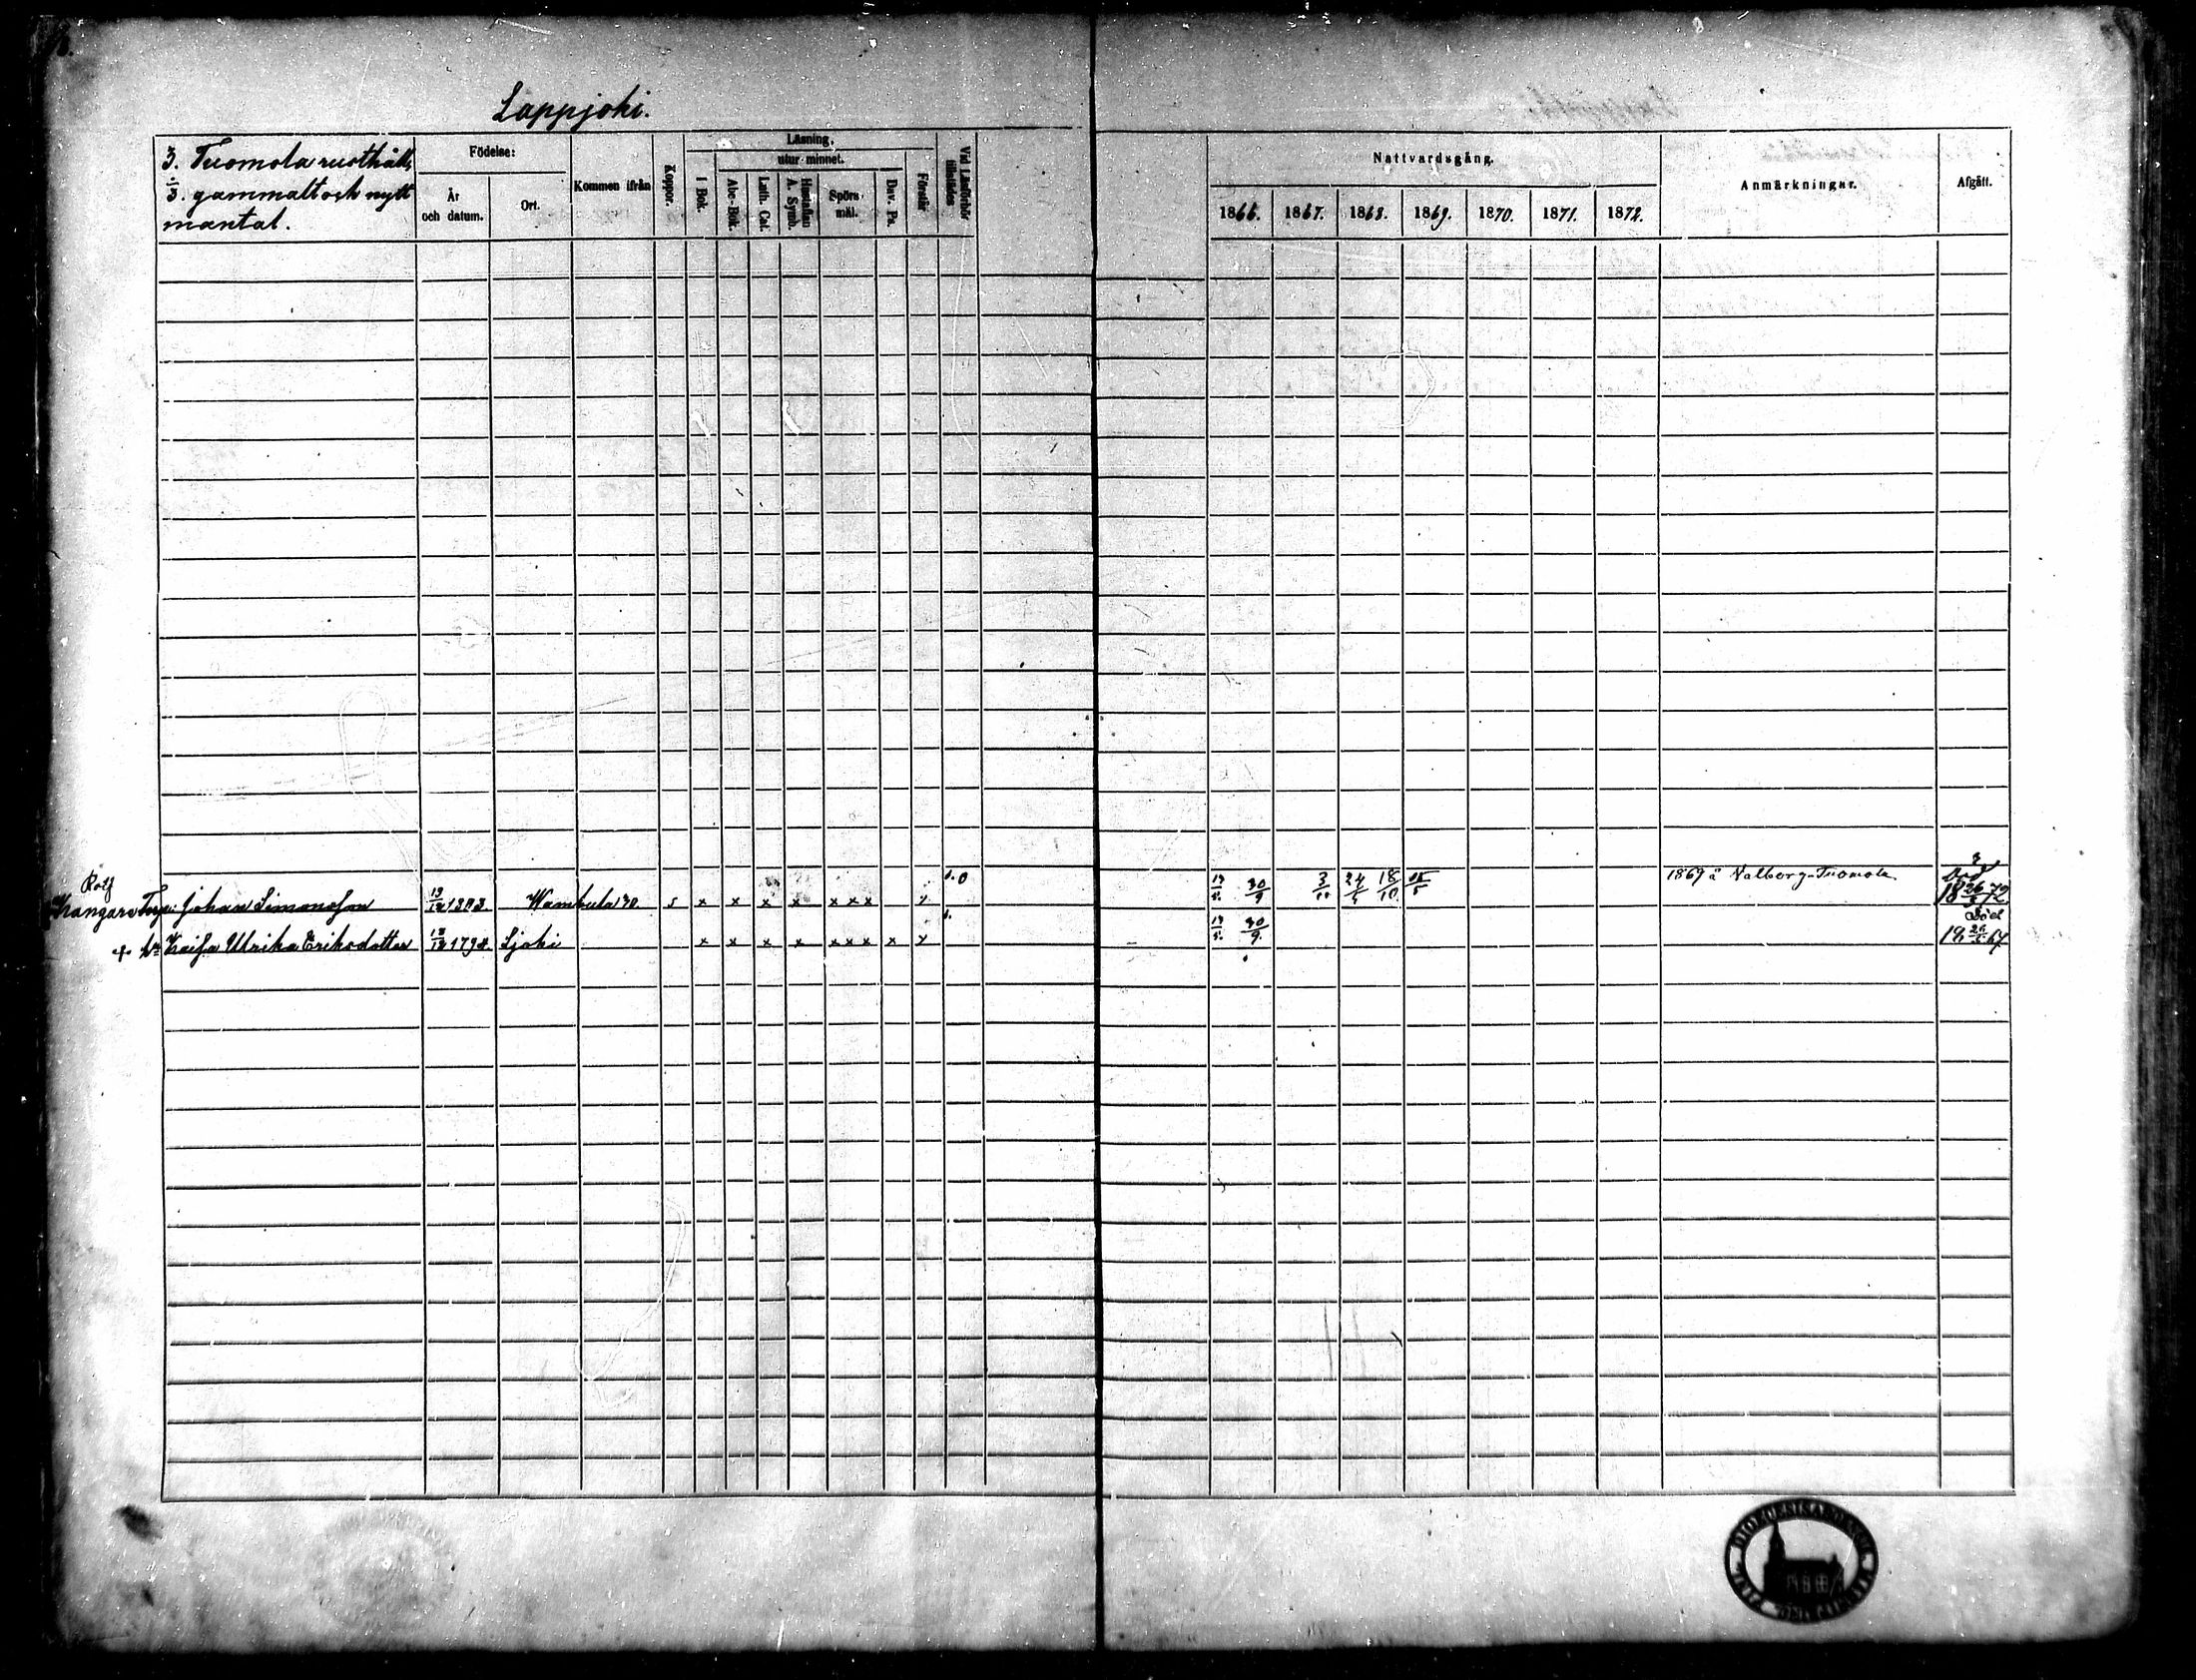 Lappjoki.
3. Tuomola rusthåll,
3. gammalt och nytt
mantal.
Födelse:
År och datum.
Ort.
Kommen ifrån
Koppor.
Läsning,
I Bok.
utur minnet.
Abc-Bok.
Luth. Cat.
Hustaflan A. Symb.
Spörs-mål.
Dav. Ps.
Förstår
Vid Läsförhör tillstädes
Nattvardsgång.
1866. 1867. 1868. 1869. 1870. 1871. 1872.
Anmärkningar.
Afgått.
Rotj
Kangars Torp: Johan Simonsson 1803 Wambula 30. s x x x x x x x 30/9 3/10 24/5 18/10 1869 å Valborg-Tuomola 72
Kaisa Ulrika Eriksdotter 1794 Ljoki x x x x x x x x 30/9. Död 67